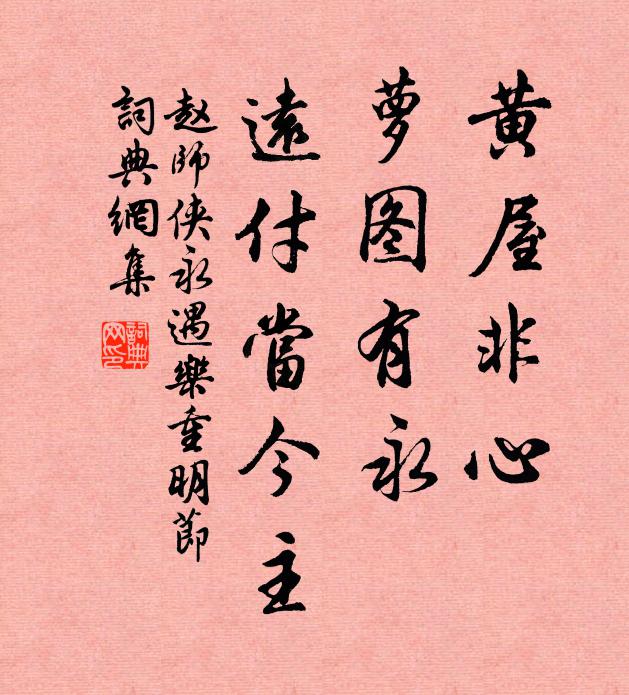 黄屋非心
萝图有永
遠付當今主
赵師俠永遇樂重明節
詞典網集
詞典網印